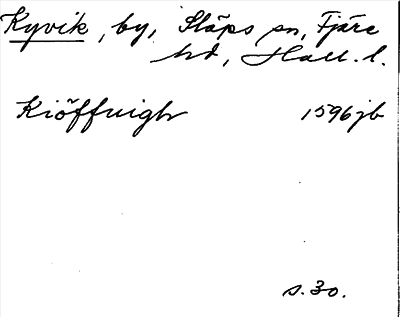 Kyvik, by, Släps sn, Fjäre
hd, Hall. l.
Kiöffuigh 1596 jb
s. 30.